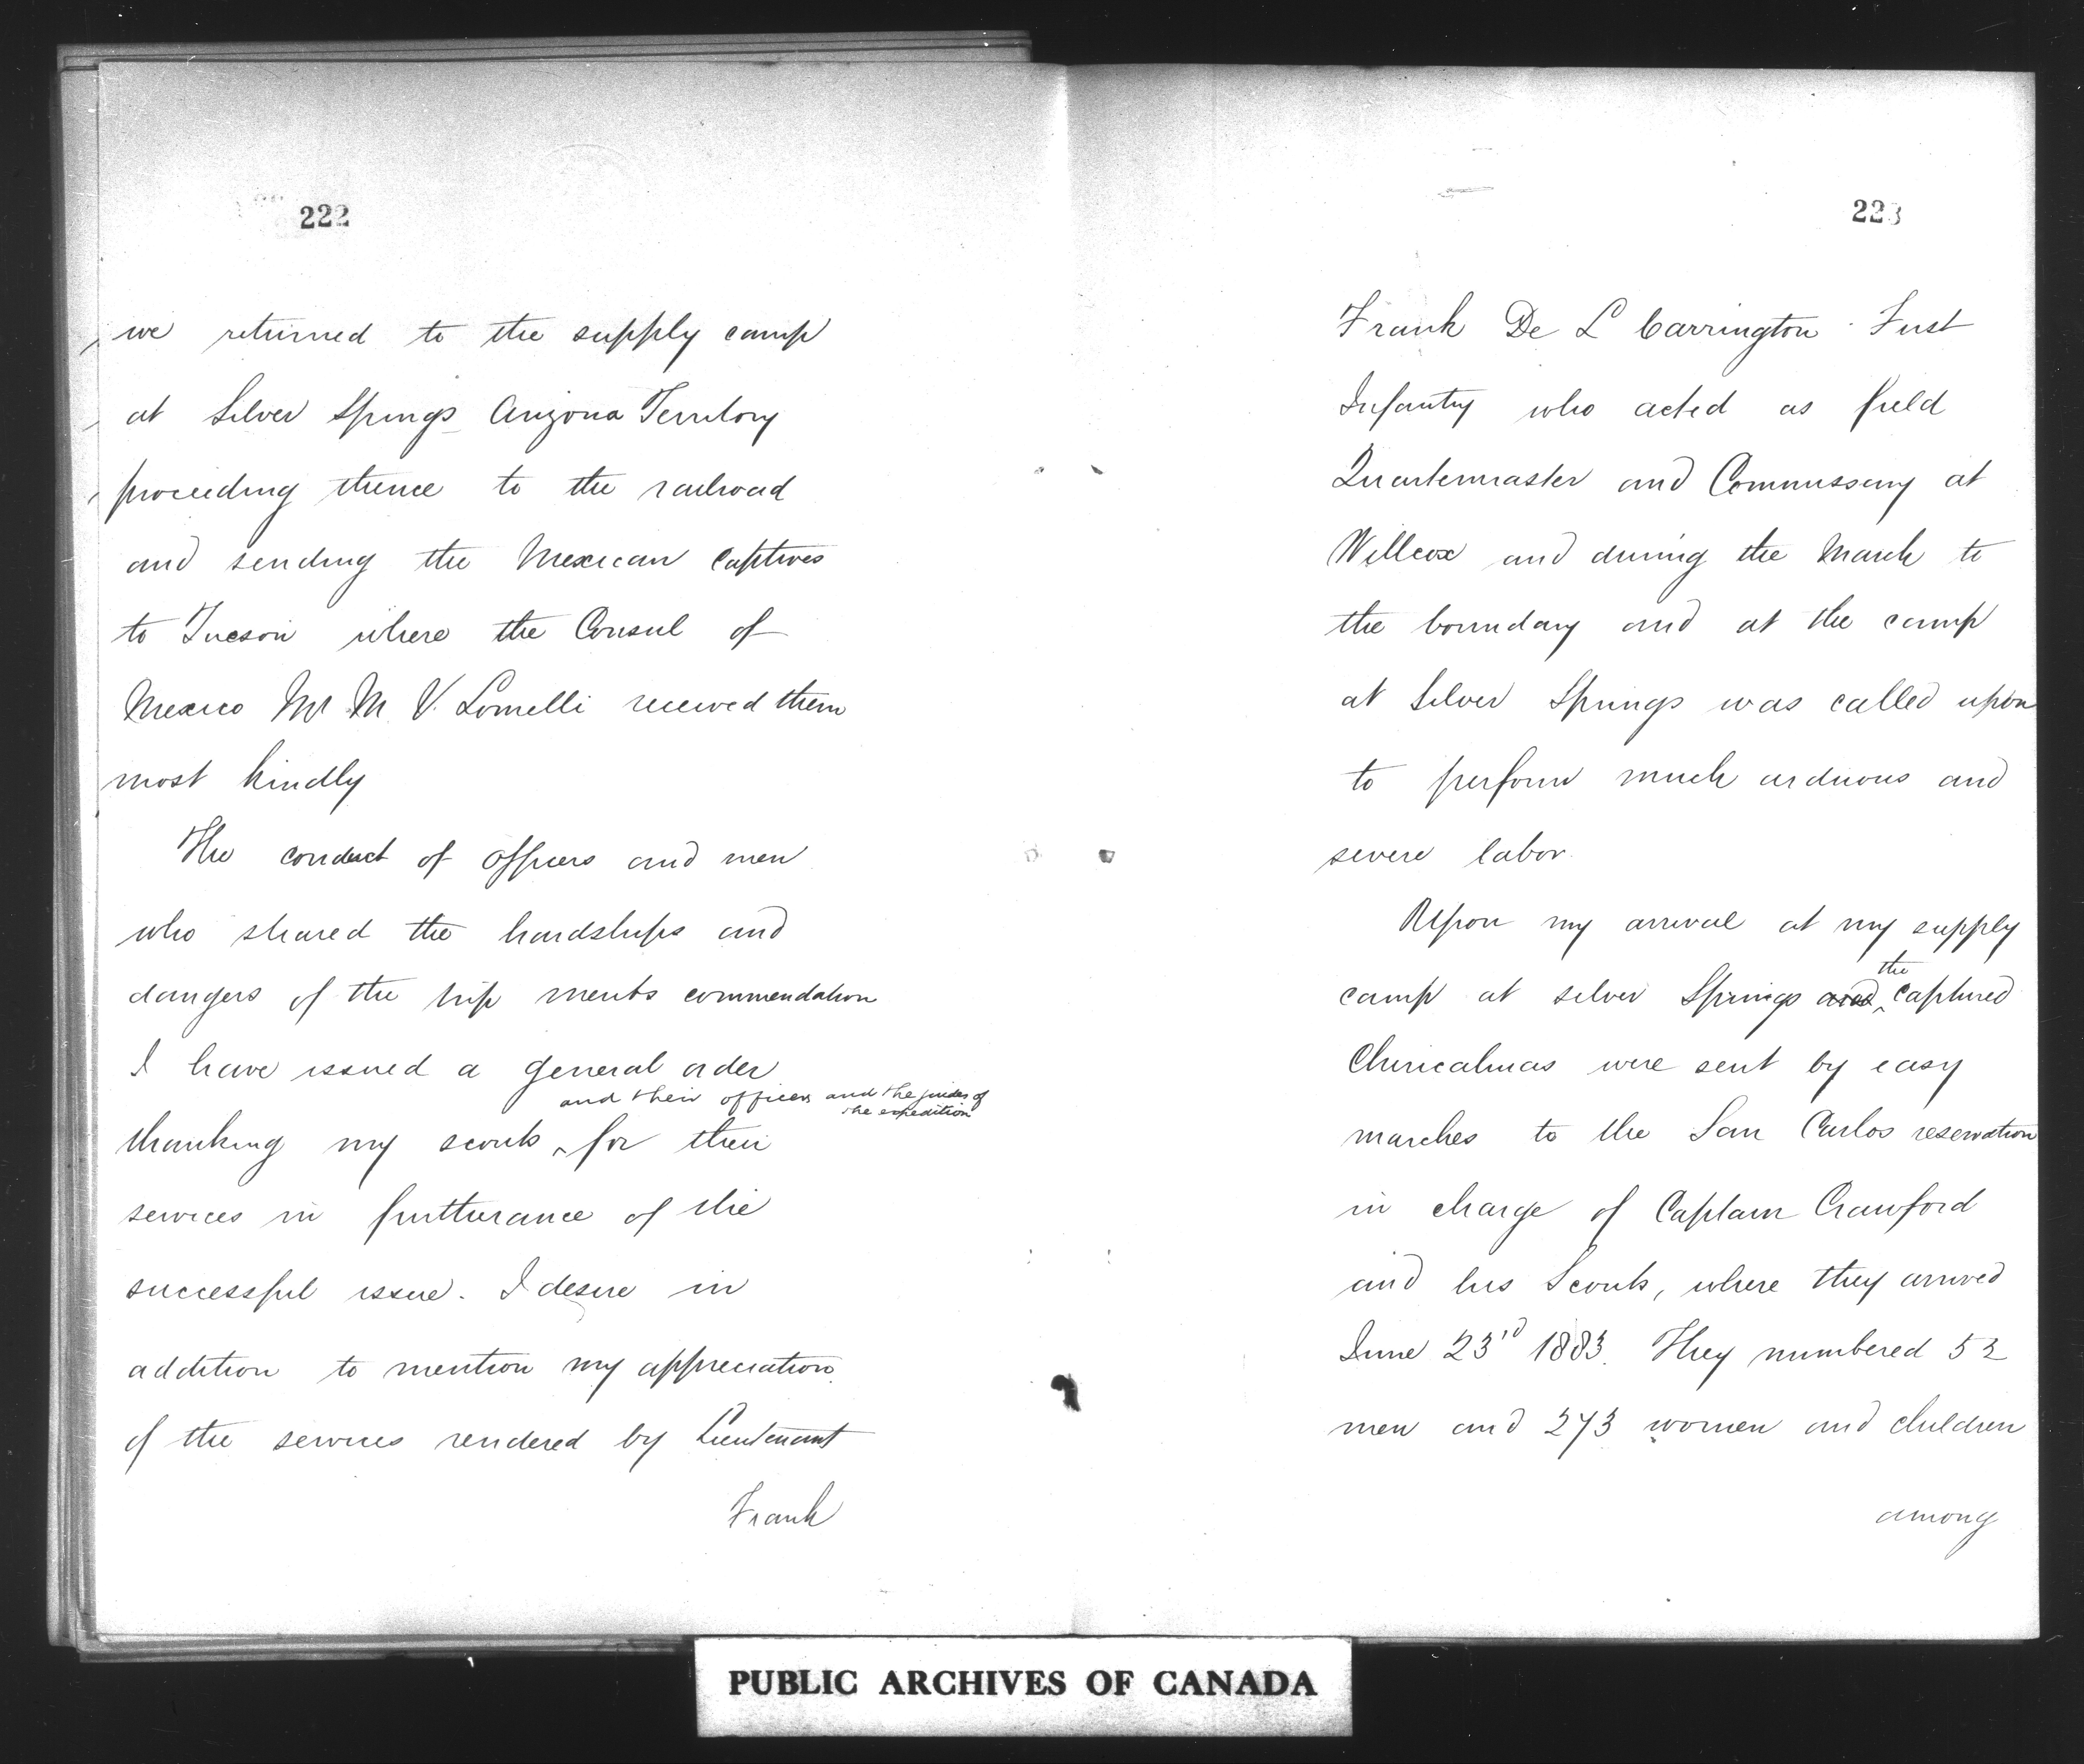 222
we returned to the supply camp
at Silver Springs Arizona Territory
proceeding thence to the railroad
and sending the Mexican Captives
to Tucson where the Consul of
Mexico Mr M. V. Lomelli received them
most kindly
The conduct of officers and men
who shared the hardships and
dangers of the trip merits commendation
I have issued a general order
and their officers and the guides of
the expedition
thanking my scouts ^ for their
services in furtherance of the
successful issue. I desire in
addition to mention my appreciation
of the services rendered by Lieutenant
Frank
223
Frank De L Carrington First
Infantry who acted as field
Quartermaster and Commissary at
Willcox and during the March to
the boundary and at the camp
at Silver Springs was called upon
to perform much arduous and
severe labor.
Upon my arrival at my supply
the
camp at Silver Springs and ^ captured
Chiricahuas were sent by easy
marches to the San Carlos reservation
in charge of Captain Crawford
and his Scouts, where they arrived
June 23rd 1883. They numbered 52
men and 273 women and children
among
PUBLIC ARCHIVES OF CANADA